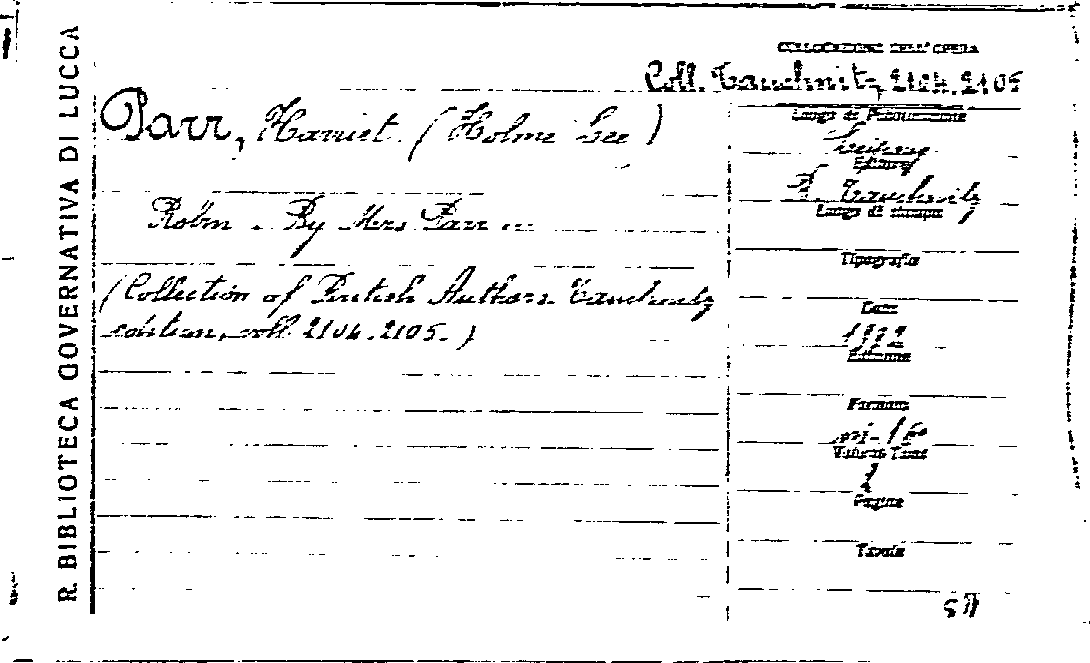 R. BIBLIOTECA GOVERNATIVA DI LUCCA
COLLOCAZIONE DELL'OPERA
Coll. Tauchnitz, 2104.2105
Parr, Harriet (Holme Lee)
Robin. By Mrs Parr ...
(Collection of British Authors Tauchnitz
edition, voll. 2104.2105.)
Luogo di Pubblicazione
Editore
B. Tauchnitz
Luogo di stampa
Tipografia
Data
1882
Edizione
Formato
in-16°
Volumi Tomi
Pagine
Tavole